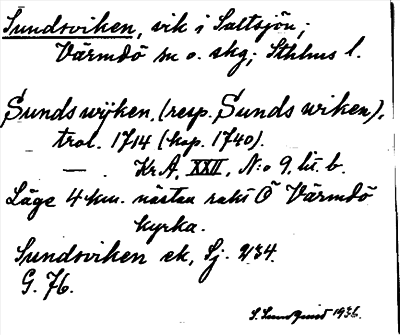 Sundsviken, vik i Saltsjön;
Värmdö sn o. skg; Sthlms l.
Sunds wÿken, (resp. Sunds wiken),
trol. 1714 (kop. 1740).
— . Kr A, XXII, N:o 9, lit. b.
Läge 4 km. nästan rakt Ö Värmdö
kyrka.
Sundsviken ek, Sj. 234.
G. 76.
S. Sundquist 1936.